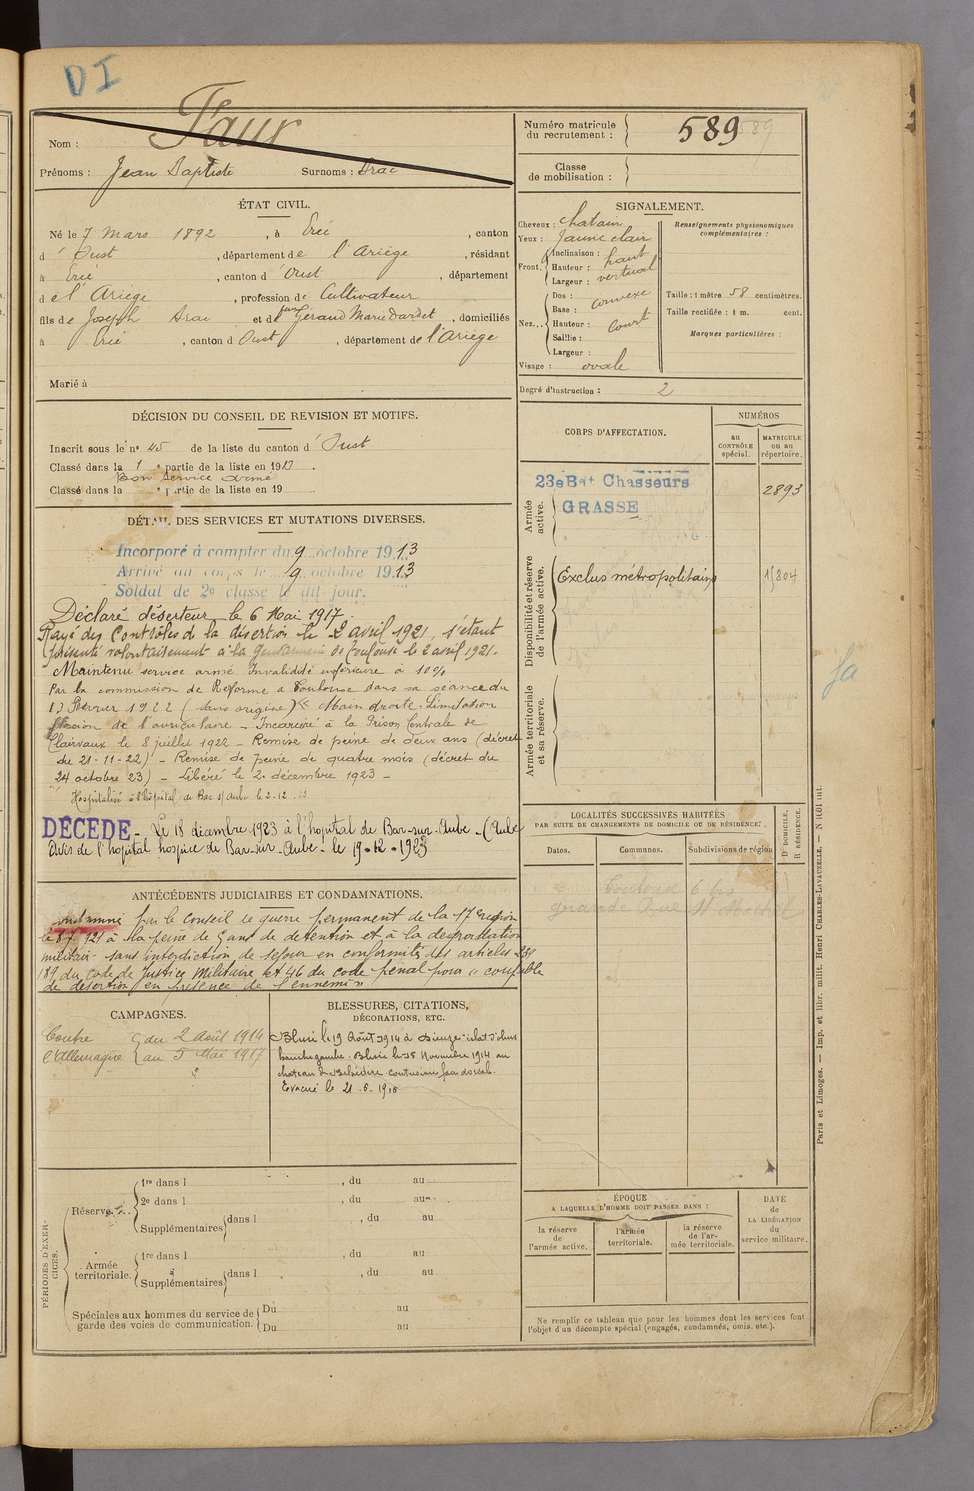 DI
Nom : Faur
Prénoms : Jean Baptiste Surnoms : Drac
ÉTAT CIVIL.
Né le 7 Mars 1892, à Ercé, canton
d'Oust, département de l'Ariège, résidant
à Ercé, canton d'Oust, département
de l'Ariège, profession de Cultivateur
fils de Joseph Drac et de feue Géraud Marie Dardet, domiciliés
à Ercé, canton d Oust, département de l'Ariège
Marié à
DÉCISION DU CONSEIL DE REVISION ET MOTIFS.
Inscrit sous le n° 45 de la liste du canton d'Oust
Classé dans la 1e partie de la liste en 1913.
Bon Service armé
Classé dans la e partie de la liste en 19
DÉTAIL DES SERVICES ET MUTATIONS DIVERSES.
Incorporé à compter du 9 octobre 1913
Arrivé au corps le 9 octobre 1913
Soldat de 2e classe le dit jour.
Déclaré déserteur le 6 Mai 1917.
Rayé des Contrôles de la désertion le 2 avril 1921, s'étant
présenté volontairement à la gendarmerie de Toulouse le 2 avril 1921.
Maintenu service armé Invalidité inférieure à 10%
Par la commission de Réforme de Toulouse dans sa séance du
Février 1922 (sans origine) « Main droite. Limitation
flexion de l'auriculaire – Incarcéré à la Prison Centrale de
Clairvaux le 8 juillet 1922 – Remise de peine de deux ans (décret
du 21-11-22) – Remise de peine de quatre mois (décret du
24 octobre 23) – Libéré le 2 décembre 1923 –
Hospitalisé à l'hôpital de Bar s/ Aube le 2-12
DÉCÉDÉ – Le 18 décembre 1923 à l'hôpital de Bar-sur-Aube – (Aube
Avis de l'hôpital hospice de Bar-sur-Aube – le 19-12-1923
ANTÉCÉDENTS JUDICIAIRES ET CONDAMNATIONS.
Condamné par le Conseil de guerre permanent de la 17e région
le 8.7.121 à la peine de 5 ans de détention et à la dégradation
militaire sans interdiction de séjour en conformité des articles 239
189 du Code de Justice Militaire et 46 du code pénal pour « coupable
de désertion en présence de l'ennemi »
CAMPAGNES.
Contre du 2 Août 1914
l'Allemagne au 5 Mai 1917
BLESSURES, CITATIONS,
DÉCORATIONS, ETC.
Blessé le 19 Août 1914 à Dieuze éclat d'obus
hanche gauche. Blessé le 15 Novembre 1914 au
chateau de contusion face dorsale.
Evacué le 21.5.1915
PÉRIODES D'EXERCICES.
Réserve
1re dans l , du au
2e dans l , du au
Supplémentaires dans l , du au
Armée territoriale.
1re dans l , du au
Supplémentaires dans l , du au
Spéciales aux hommes du service de garde des voies de communication.
Du au
Du au
Numéro matricule du recrutement : 589
Classe de mobilisation :
SIGNALEMENT.
Cheveux : chatain
Yeux : Jaune clair
Front.
Inclinaison : haut
Hauteur : vertical
Largeur :
Nez...
Dos : convexe
Base :
Hauteur : court
Saillie :
Largeur :
Visage : ovale
Renseignements physionomiques complémentaires :
Taille : 1 mètre 58 centimètres.
Taille rectifiée : 1 m. cent.
Marques particulières :
Degré d'instruction : 2
CORPS D'AFFECTATION.
NUMÉROS
au CONTRÔLE spécial.
MATRICULE ou au répertoire.
Armée active.
23e Bat Chasseurs 2893
GRASSE
Disponibilité et réserve de l'armée active.
Exclus métropolitains 15804
Armée territoriale et sa réserve.
LOCALITÉS SUCCESSIVES HABITÉES
PAR SUITE DE CHANGEMENTS DE DOMICILE OU DE RÉSIDENCE.
Dates. Communes. Subdivisions de région D. DOMICILE. R. RÉSIDENCE.
Toulouse 6 bis
grande Rue St Michel
ÉPOQUE
A LAQUELLE L'HOMME DOIT PASSER DANS :
la réserve de l'armée active.
l'armée territoriale.
la réserve de l'armée territoriale.
DATE de LA LIBÉRATION du service militaire.
Ne remplir ce tableau que pour les hommes dont les services font
l'objet d'un décompte spécial (engagés, condamnés, omis, etc.).
Paris et Limoges. — Imp. et libr. milit. Henri CHARLES-LAVAUZELLE.